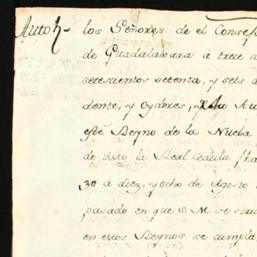 Auto - los Señores de el Consej
de Guadalaxara à trece d
setecientos setenta, y seis
dente, y Oydores, de la Au
este Reyno de la Nueba
do visto la Real Cedula fha
so à diez, y ocho de Agosto
pasado en que S. M. se sirv
en estos Reynos se cumpla